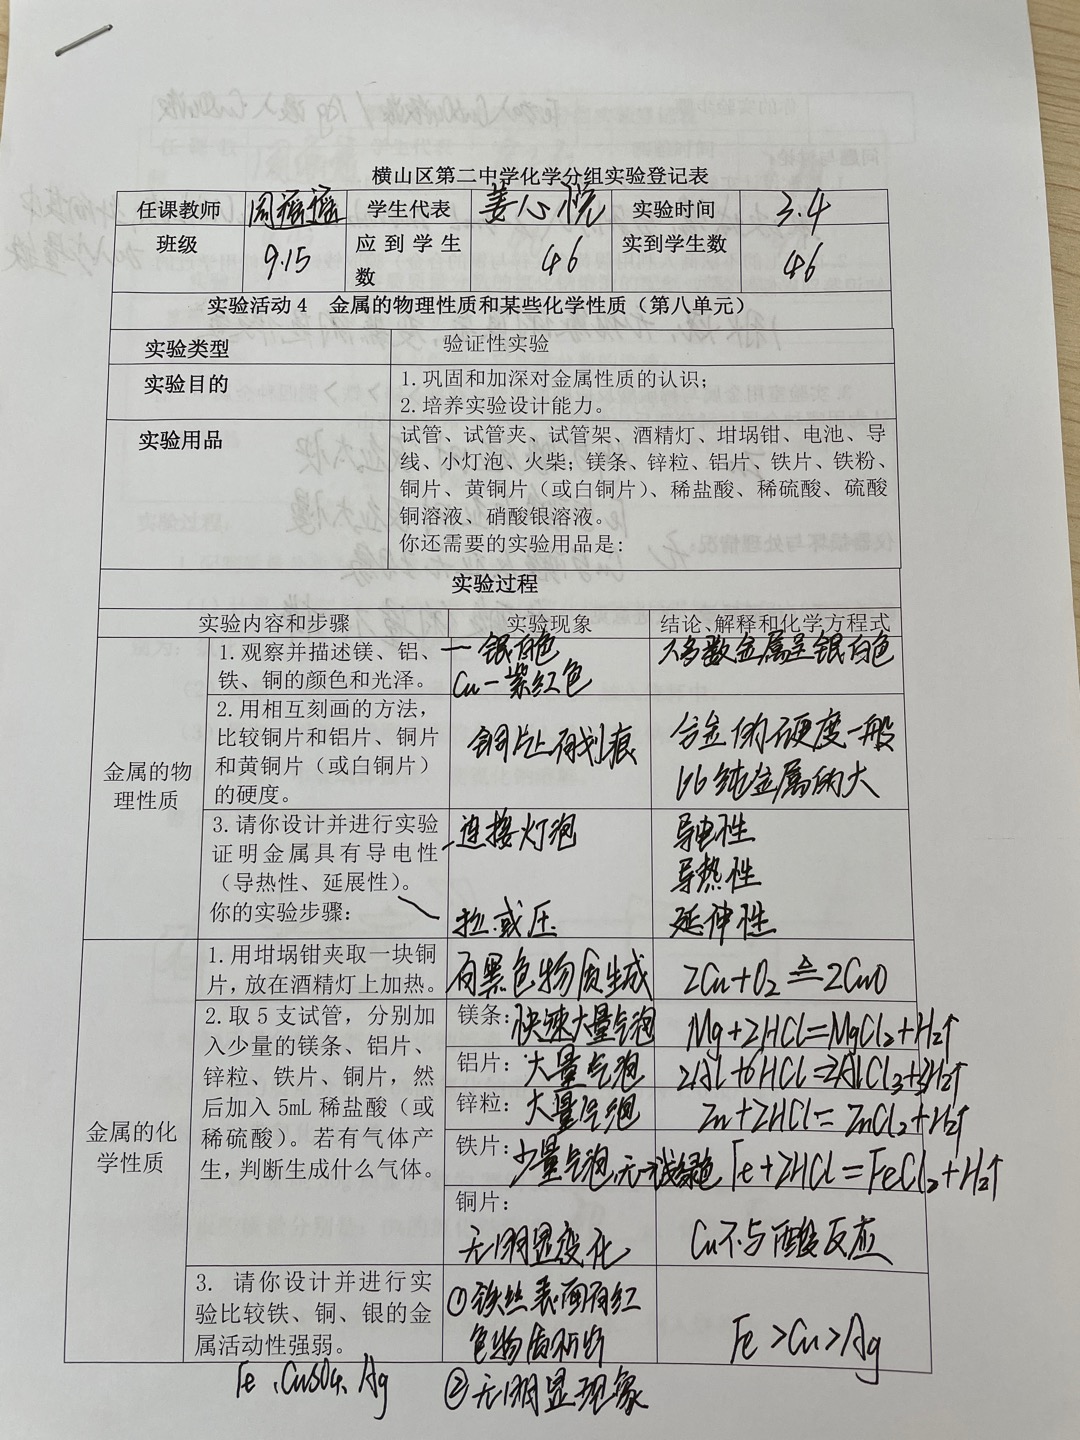 横山区第二中学化学分组实验登记表
任课教师 周瑶瑶 学生代表 姜心悦 实验时间 3.4
班级 9.15 应到学生数 46 实到学生数 46
实验活动4 金属的物理性质和某些化学性质（第八单元）
实验类型 验证性实验
实验目的 1.巩固和加深对金属性质的认识；
2.培养实验设计能力。
实验用品 试管、试管夹、试管架、酒精灯、坩埚钳、电池、导
线、小灯泡、火柴；镁条、锌粒、铝片、铁片、铁粉、
铜片、黄铜片（或白铜片）、稀盐酸、稀硫酸、硫酸
铜溶液、硝酸银溶液。
你还需要的实验用品是：
实验过程
实验内容和步骤 实验现象 结论、解释和化学方程式
金属的物理性质
1.观察并描述镁、铝、
铁、铜的颜色和光泽。
一银白色
Cu一紫红色
大多数金属呈银白色
2.用相互刻画的方法，
比较铜片和铝片、铜片
和黄铜片（或白铜片）
的硬度。
铜片上有划痕
合金的硬度一般
比纯金属的大
3.请你设计并进行实验
证明金属具有导电性
（导热性、延展性）。
你的实验步骤：
连接灯泡
拉或压
导电性
导热性
延伸性
金属的化学性质
1.用坩埚钳夹取一块铜
片，放在酒精灯上加热。
有黑色物质生成
2Cu+O₂≜2CuO
2.取5支试管，分别加
入少量的镁条、铝片、
锌粒、铁片、铜片，然
后加入5mL稀盐酸（或
稀硫酸）。若有气体产
生，判断生成什么气体。
镁条：快速大量气泡 Mg+2HCl=MgCl₂+H₂↑
铝片：大量气泡 2Al+6HCl=2AlCl₃+3H₂↑
锌粒：大量气泡 Zn+2HCl=ZnCl₂+H₂↑
铁片：少量气泡，无→浅绿色 Fe+2HCl=FeCl₂+H₂↑
铜片：
无明显变化 Cu不与酸反应
3. 请你设计并进行实
验比较铁、铜、银的金
属活动性强弱。
Fe、CuSO₄、Ag
①铁丝表面有红
色物质析出
②无明显现象
Fe>Cu>Ag